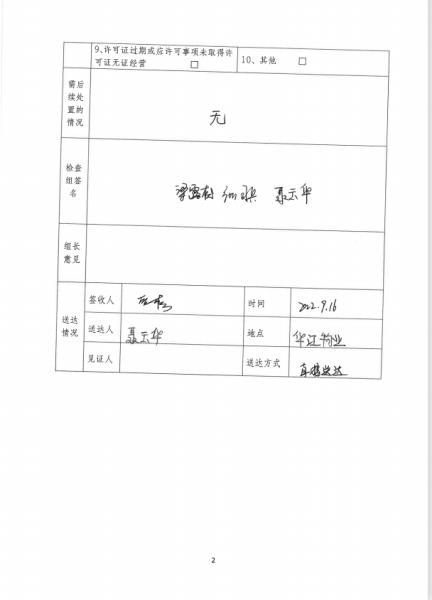 9、许可证过期或应许可事项未取得许
可证无证经营 □
10、其他 □
需后
续处
置的
情况
无
检查
组签
名
聂云华
组长
意见
送达
情况
签收人
时间
2022.9.16
送达人
聂云华
地点
华江物业
见证人
送达方式
直接送达
2